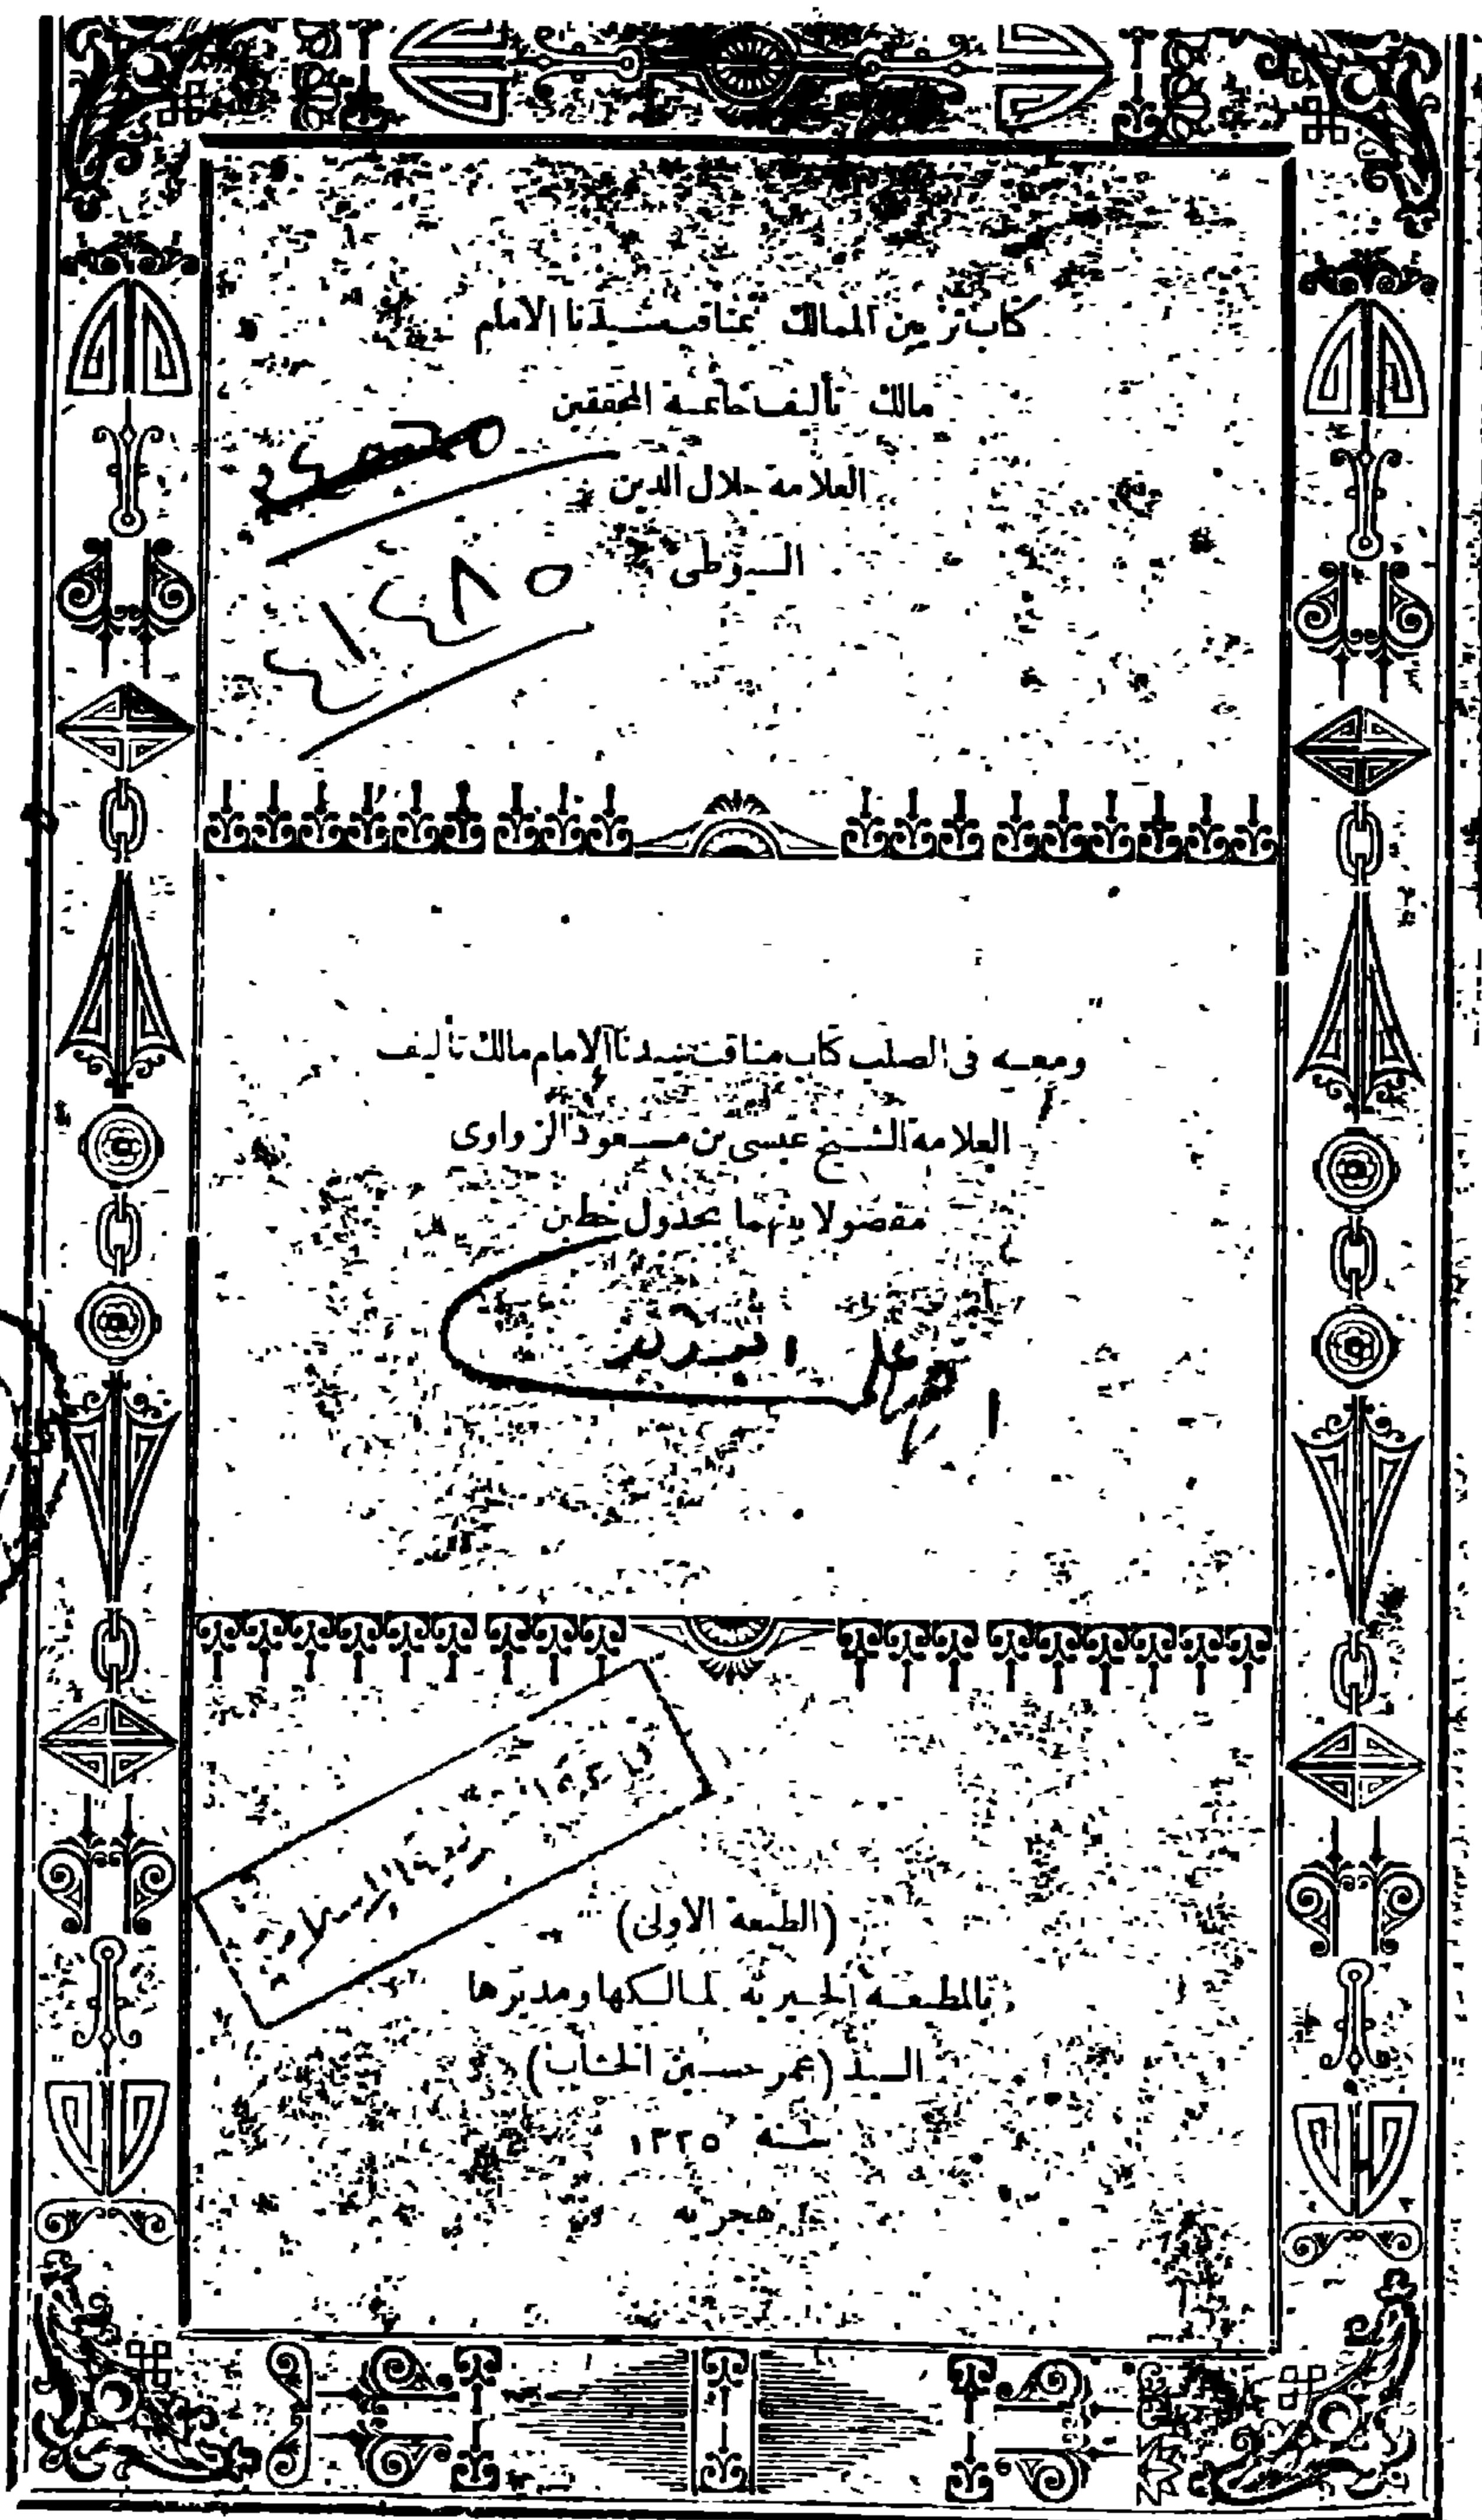 كتاب تزيين الممالك بمناقب سيدنا الامام
مالك تأليف خاتمة المحققين
العلامة جلال الدين
السيوطى
ومعه فى الصلب كتاب مناقب سيدنا الامام مالك تأليف
العلامة الشيخ عيسى بن مسعود الزواوى
مفصولا بينهما بجدول خطين
(الطبعة الاولى)
بالمطبعة الخيرية لمالكها ومديرها
السيد (عمر حسين الخشاب)
سنة ١٣٢٥
هجريه